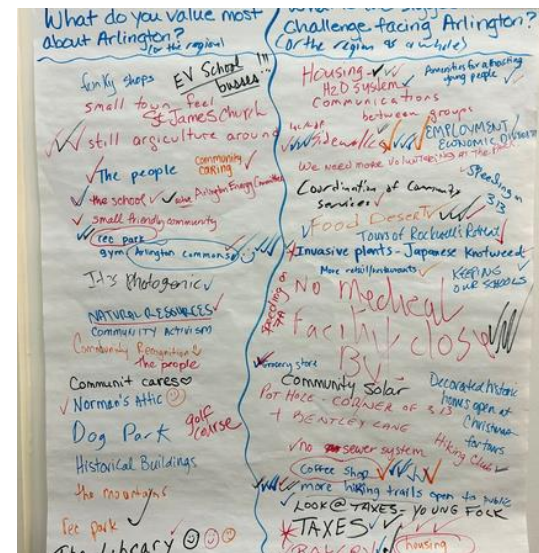 What do you value most
about Arlington?
(or the region)
funky shops
EV School
busses!!!
small town feel
St James Church
still argiculture around
The people
Community
caring
the school
Arlington Energy Committee
small friendly community
rec park
gym Arlington commons
It's photogenic
NATURAL RESOURCES
COMMUNITY ACTIVISM
Community Recognition
the people
Communit cares
Norman's Attic
golf
course
Dog Park
Historical Buildings
the mountains
rec park
The library
challenge facing Arlington?
(or the region as a whole)
Housing
Amenities for attracting
young people
H2O System
Communications
between groups
Sidewalks
EMPLOYMENT/
ECONOMIC
We need more volunteering in the
Speeding on
313
Coordination of Community
services
Food Desert
Tours of Rockwell's Retreat
Invasive plants - Japanese Knotweed
More retail/restaurants
KEEPING
OUR SCHOOLS
Speeding on
7A
No Medical
Facility close
By
Grocery store
Community Solar
Decorated historic
homes open at
Christmas
for tours
POT HOLE - CORNER OF 313
+ BENTLEY LANE
Hiking Club
no sewer system
Coffee shop
more hiking trails open to public
LOOK @ TAXES - YOUNG FOLK
TAXES
housing